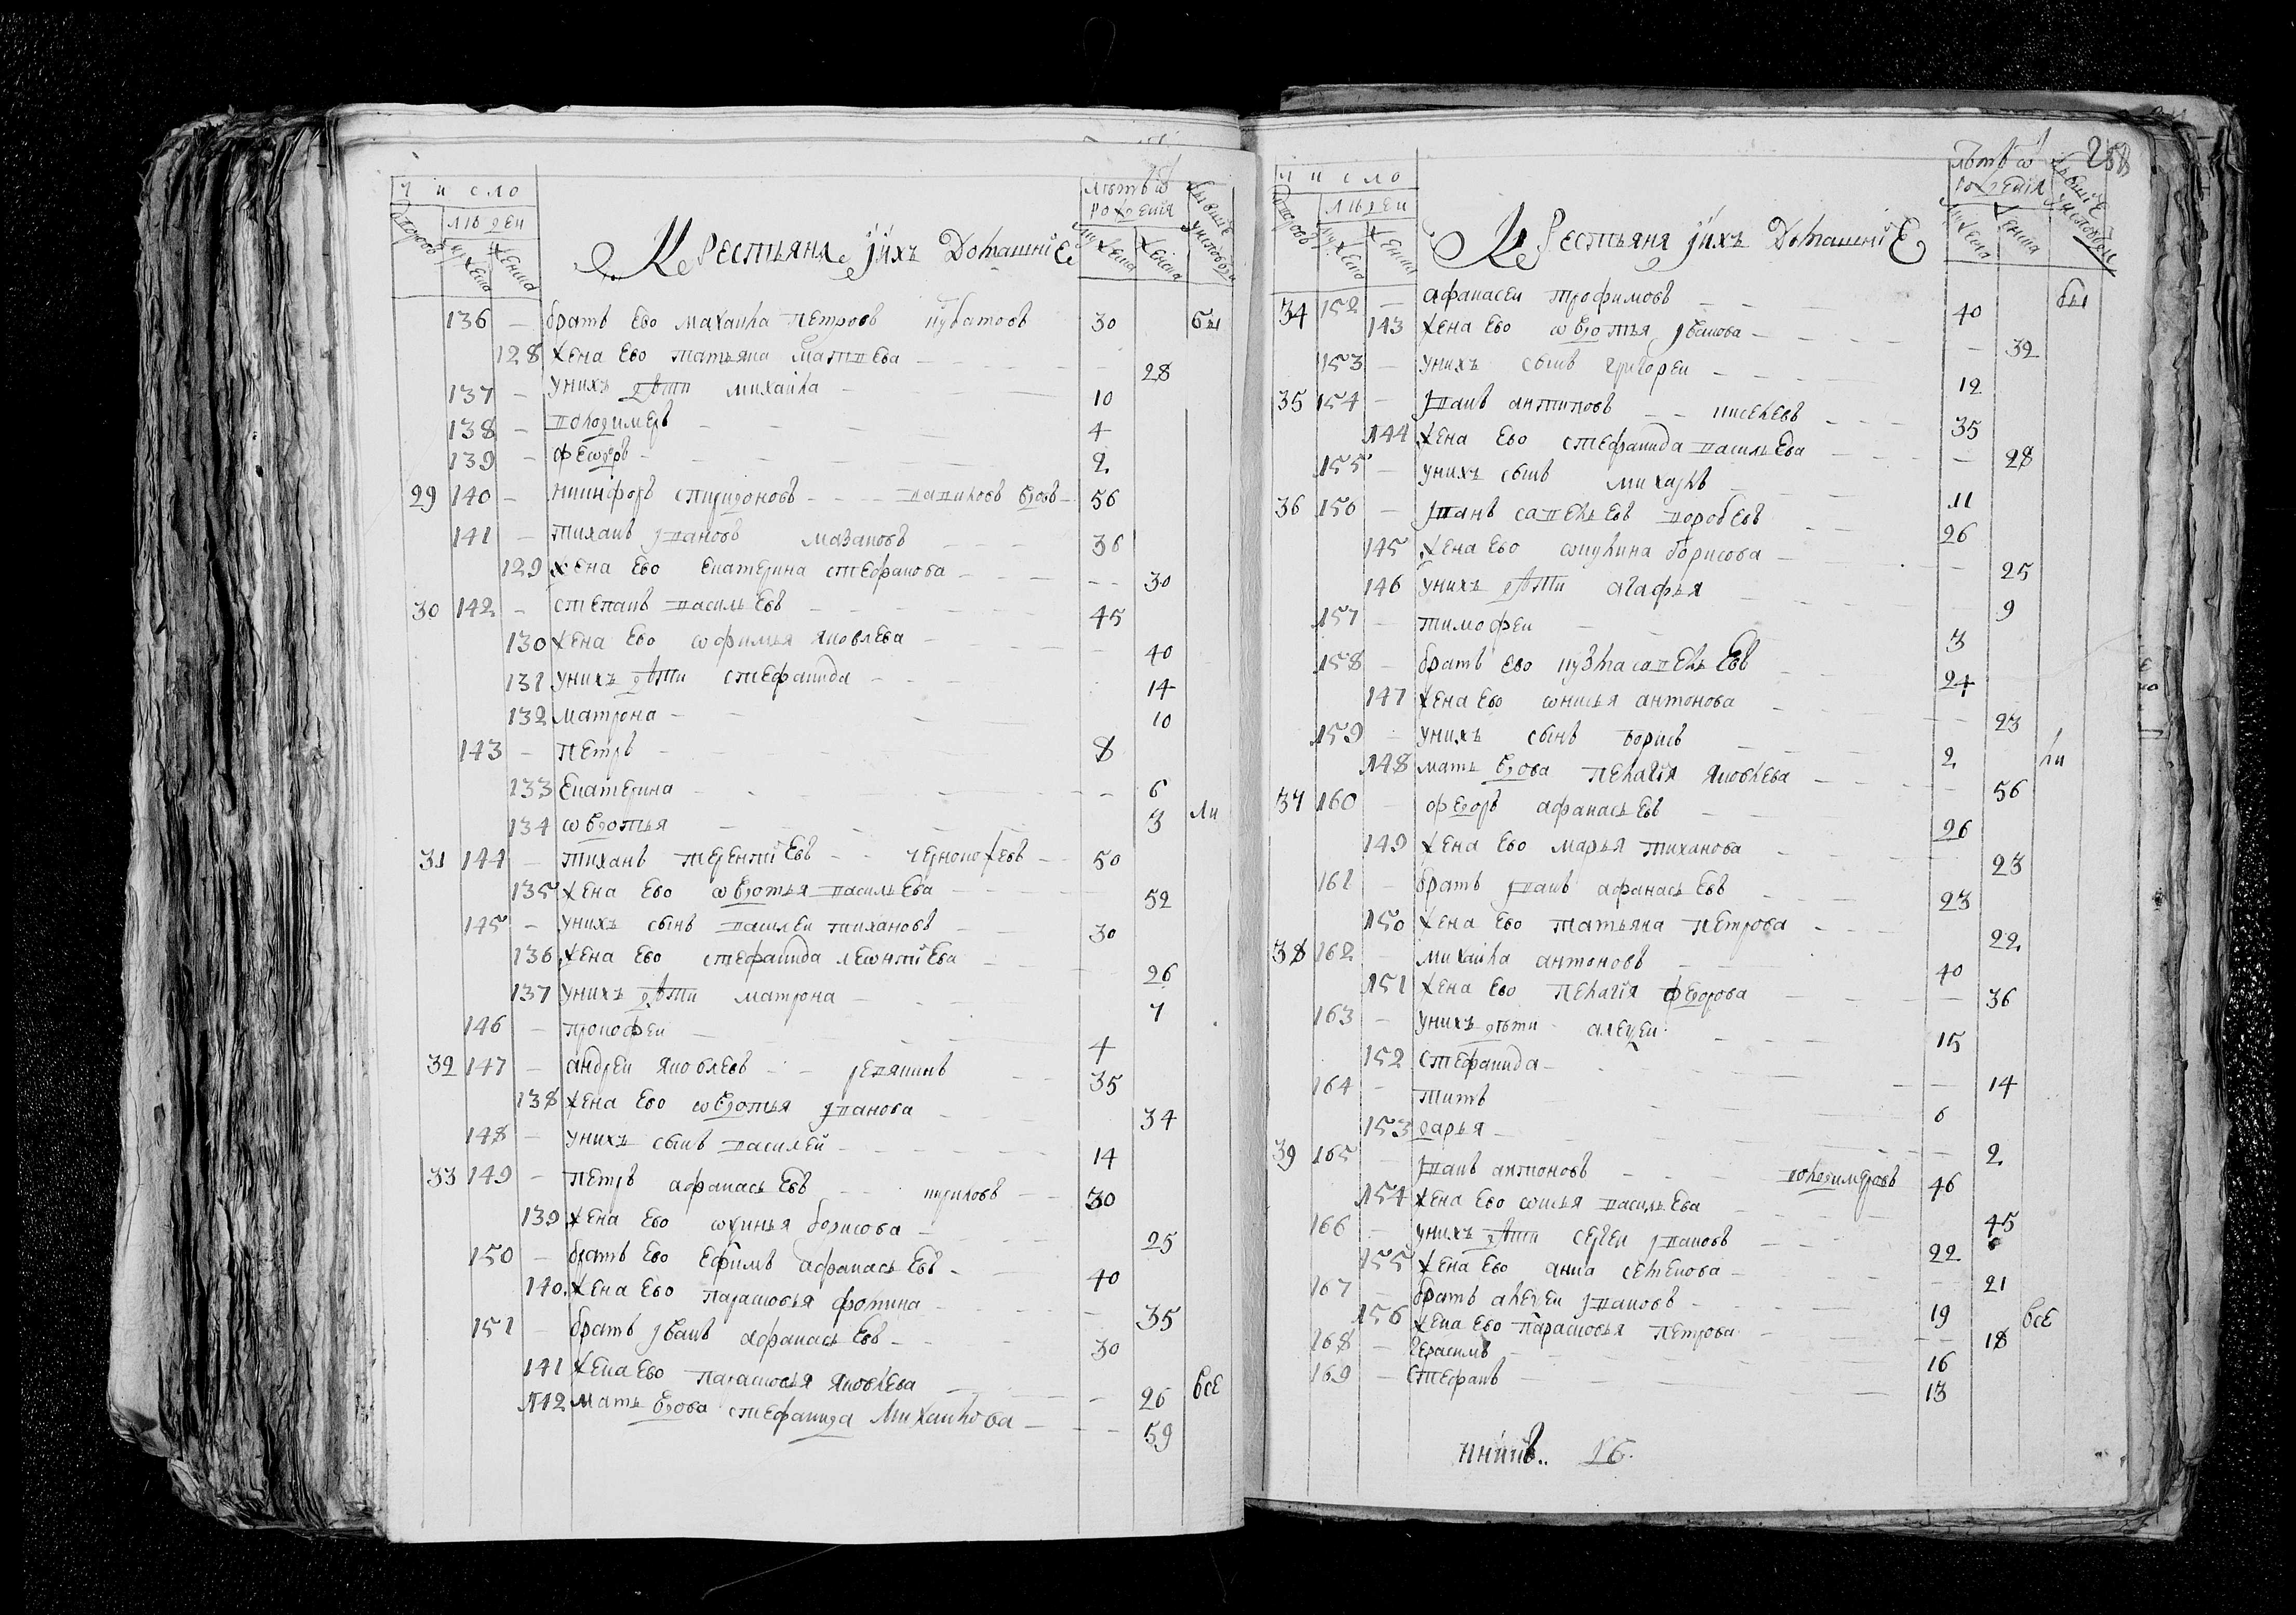 число
людеи
дворовъ
мужеска
женска
Крестьяня ихъ Домашние
лѣтъ ѿ
рождения
мужеска
женска
136 — братъ ево михаила петровъ 30 бы
128 жена ево татьяна матвѣева — 28
137 — унихъ дѣти михаила — 10
138 — володимеръ — 4
139 — феѡдоръ — 2
29 140 — никифоръ спиридоновъ — вдовъ — 56
141 — тиханъ ивановъ мазановъ — 36
129 жена ево екатерина стефанова — 30
30 142 — степанъ васильевъ — 45
130 жена ево ѡфимья яковлева — 40
131 унихъ дѣти стефанида — 14
132 матрона — 10
143 — петръ — 8
133 екатерина — 6
134 ѡвдотья — 3 ли
31 144 — тиханъ терентиевъ — черноножевъ — 50
135 жена ево ѡвдотья васильева — 52
145 — унихъ сынъ василеи тихановъ — 30
136 жена ево стефанида леѡнтиева — 26
137 унихъ дѣти матрона — 7
146 — прокофеи — 4
32 147 — андреи яковлевъ — 35
138 жена ево ѡвдотья иванова — 34
148 — унихъ сынъ василеи — 14
33 149 — петръ афанасьевъ — 30
139 жена ево борисова — 25
150 — братъ ево ефимъ афанасьевъ — 40
140. жена ево парасковья фомина — 35
151 — братъ иванъ афанасьевъ — 30
141 жена ево парасковья яковлева — 26 все
142 мать вдова стефанида михаилова — 59
258
число
людеи
дворовъ
мужеска
женска
Крестьяня ихъ Домашние
лѣтъ ѿ
рождения
мужеска
женска
34 152 — афанасеи трофимовъ — 40 бы
143 жена ево ѡвдотья иванова — 32
153 — унихъ сынъ григореи — 12
35 154 — иванъ антиповъ — 35
144 жена ево стефанида васильева — 28
155 — унихъ сынъ михаилъ — 11
36 156 — иванъ савельевъ воробевъ — 26
145 жена ево ѡкулина борисова — 25
146 унихъ дѣти агафья — 9
157 — тимофеи — 3
158 — братъ ево кузма савельевъ — 24
147 жена ево ѡнисья антонова — 23
159 — унихъ сынъ борисъ — 2 ли
148 мать вдова пелагия яковлева — 56
37 160 — феодоръ афанасьевъ — 26
149 жена ево марья тиханова — 23
161 — братъ иванъ афанасьевъ — 23
150 жена ево татьяна петрова — 22
38 162 — михаила антоновъ — 40
151 жена ево пелагия федорова — 36
163 — унихъ дѣти — 15
152 стефанида — 14
164 — титъ — 6
153 дарья — 2
39 165 — иванъ антоновъ — володимеровъ 46
154 жена ево васильева — 45
166 — унихъ дѣти сергеи ивановъ — 22
155 жена ево анна семенова — 21
167 — братъ ивановъ — 19
156 жена ево парасковья петрова — 18 все
168 — герасимъ — 16
169 — стефанъ — 13
16.